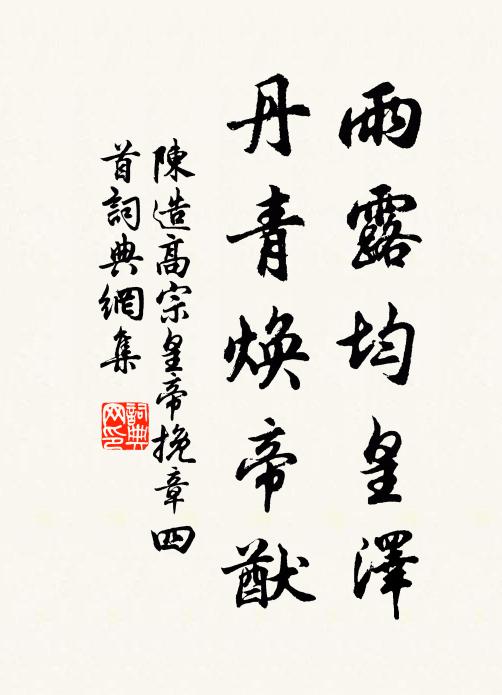 雨露均皇澤
丹青煥帝猷
陳造高宗皇帝挽章四
首詞典網集
詞典网印